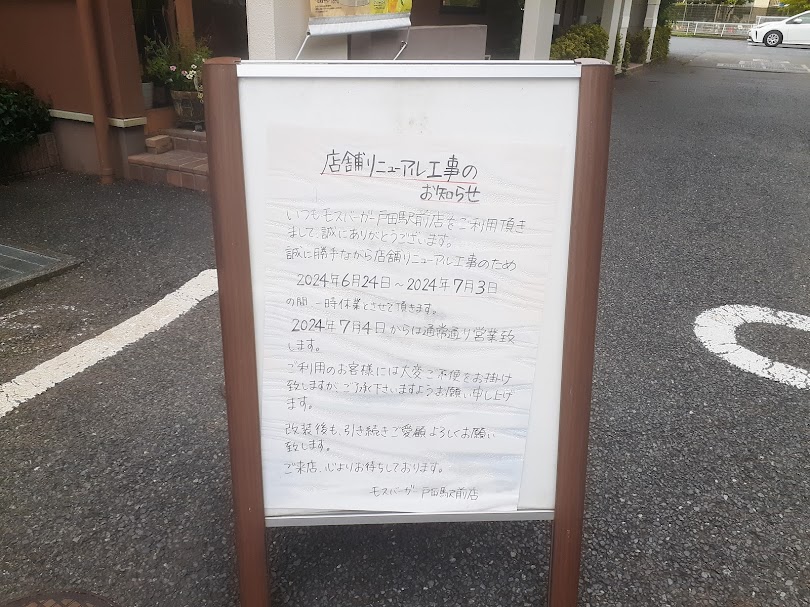 店舗リニューアル工事の
お知らせ
いつもモスバーガー戸田駅前店をご利用頂き
まして、誠にありがとうございます。
誠に勝手ながら店舗リニューアル工事のため
2024年6月24日～2024年7月3日
の間、一時休業とさせて頂きます。
2024年7月4日からは通常通り営業致
します。
ご利用のお客様には大変ご不便をお掛け
致しますが、ご了承下さいますようお願い申し上げ
ます。
改装後も、引き続きご愛顧よろしくお願い
致します。
ご来店、心よりお待ちしております。
モスバーガー戸田駅前店